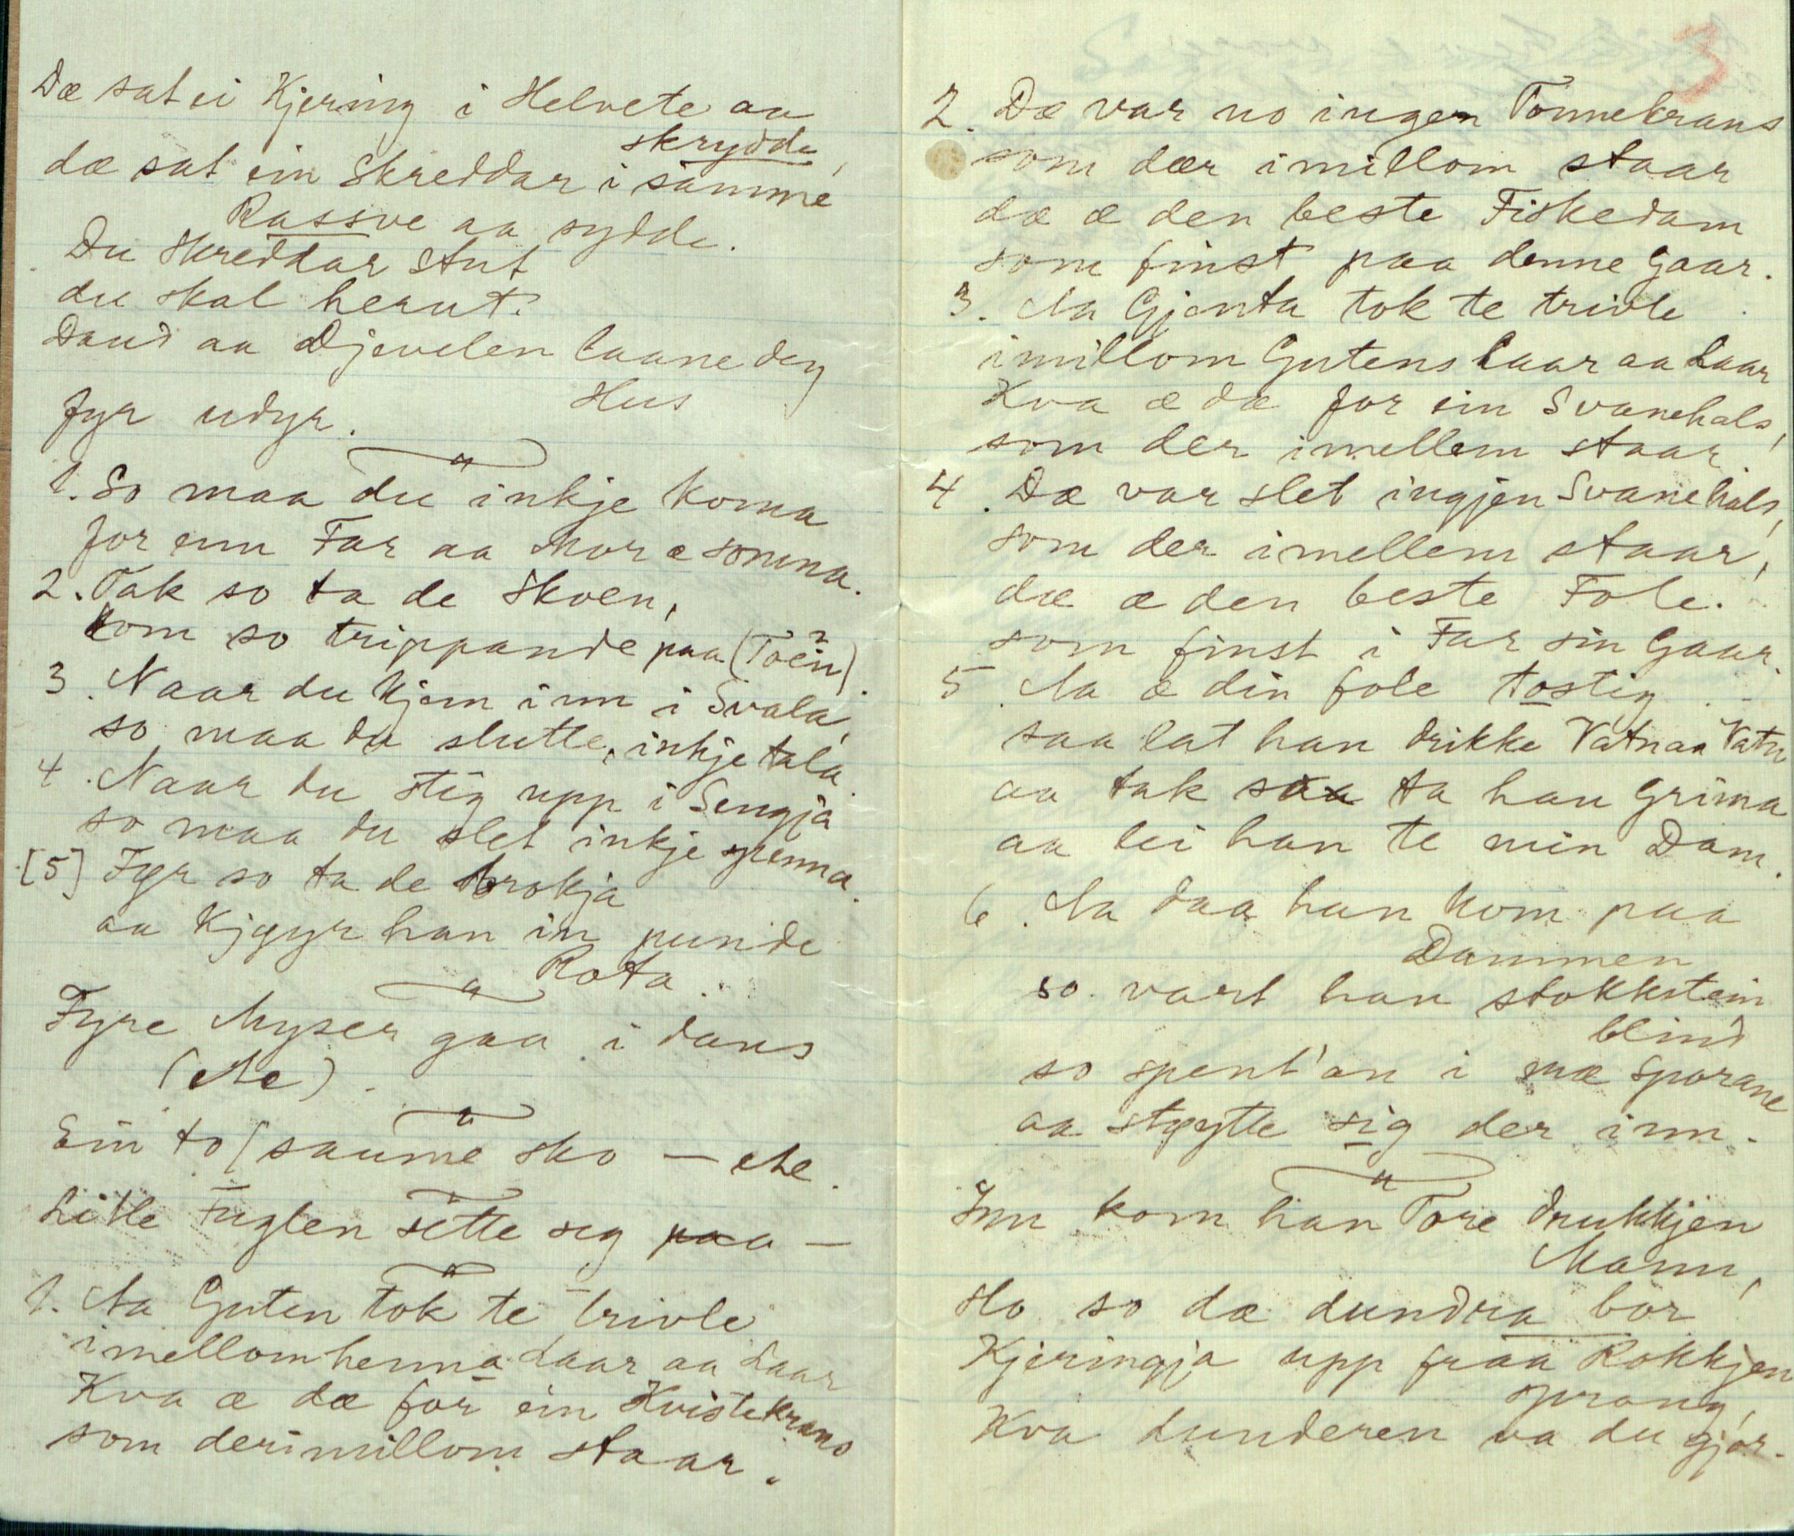 Dæ sat ei Kjering i Helvete aa
skrydde,
dæ sat ein Skreddar i samme
Rassve aa sydde.
Du Skreddar Stut
du skal herut.
Daud aa Djevelen laane deg
Hus
fyr udyr.
1. So maa du inkje koma
for enn Far aa Mor æ somna.
2. Tak so ta de Skoen,
kom so trippande paa (Toein).
3. Naar du kjem inn i Svala,
so maa du slutte, inkje tala
4. Naar du stig upp i Sengja
so maa du slet inkje grenna.
[5] Fyr so ta de brokja
aa Kjøyr han in punde
Rota.
Fyre Myser gaa i dans
(etc).
Ein to saume sko — etc.
Litle Fuglen sette seg paa —
1. Aa Guten tok te trivle
imellom henna Laar aa Laar
Kva æ dæ for ein Kvistekrans
som der imillom staar.
2. Dæ var no ingen Tonnekrans
som dær imillom staar
dæ æ den beste Fiskedam
som finst paa denne Gaar.
3. Aa Gjenta tok te trivle
imillom Gutens Laar aa Laar
Kva æ dæ for ein Svanehals,
som der imellem staar.
4. Dæ var slet ingjen Svanehals,
som der imellem staar,
dæ æ den beste Fole.
som finst i Far sin Gaar.
5. Aa æ din fole tostig
saa lat han drikke Vatn aa Vatn
aa tak saa ta han Grima
aa lei han te min Dam.
6. Aa daa han kom paa
Dammen
so vart han stokkstein
blind
so spent'an i mæ Sporane
aa støytte sig der inn.
Inn kom han Tore drukkjen
Mann,
Ho so dæ dundra bor
Kjeringja upp fraa Rokkjen
sprang,
Kva dunderen va du gjør.